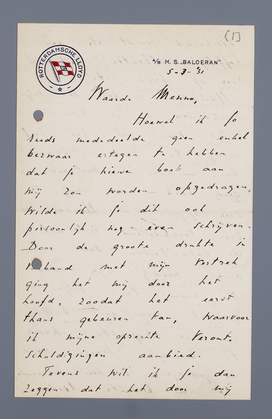 (1)
ROTTERDAMSCHE LLOYD
a/b M.S. „BALOERAN"
5-8-'31
Waarde Menno,
Hoewel ik je
reeds mededeelde geen enkel
bezwaar ertegen te hebben
dat je nieuwe boek aan
mij zou worden opgedragen,
wilde ik je dit ook
persoonlijk nog even schrijven.
Door de groote drukte in
verband met mijn vertrek
ging het mij door het
hoofd, zoodat het eerst
thans gebeuren kan, waarvoor
ik mijne oprechte veront-
schuldigingen aanbied.
Tevens wil ik je dan
zeggen dat het door mij